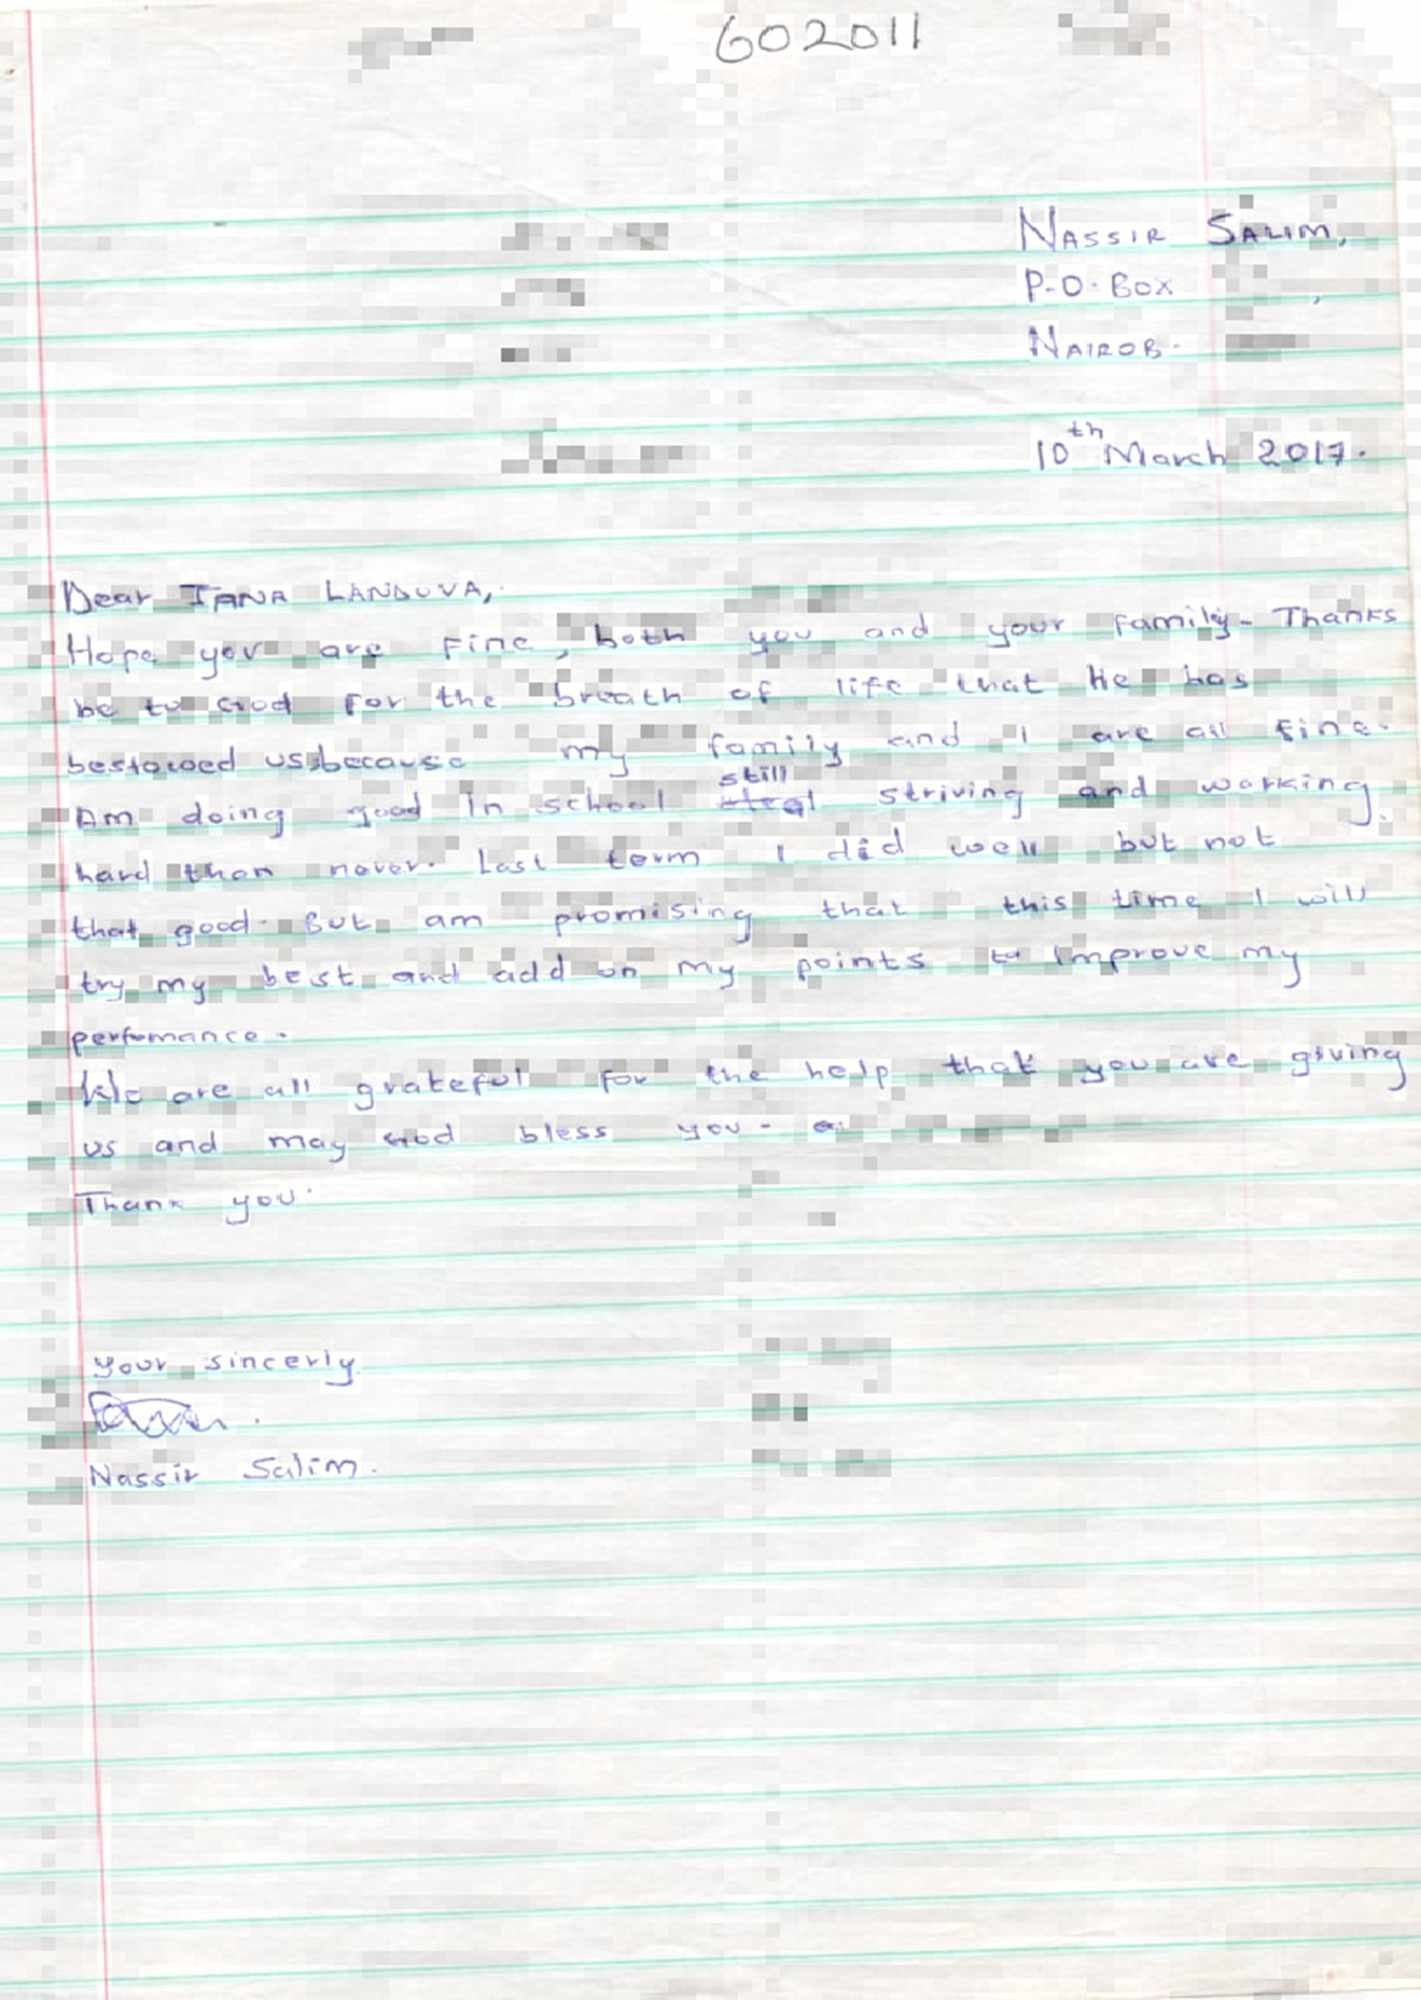 602011
NASSIR SALIM,
P.O. BOX ,
NAIROB.
10th March 2017.
Dear IANA LANDUVA,
Hope you are fine, both you and your family. Thanks
be to God for the breath of life that He has
bestowed us because my family and I are all fine.
Am doing good in school still striving and working
hard than never. Last term I did well but not
that good. But am promising that this time I will
try my best and add on my points to improve my
perfomance.
We are all grateful for the help that you are giving
us and may God bless you.
Thank you.
your sincerly
Nassir Salim.